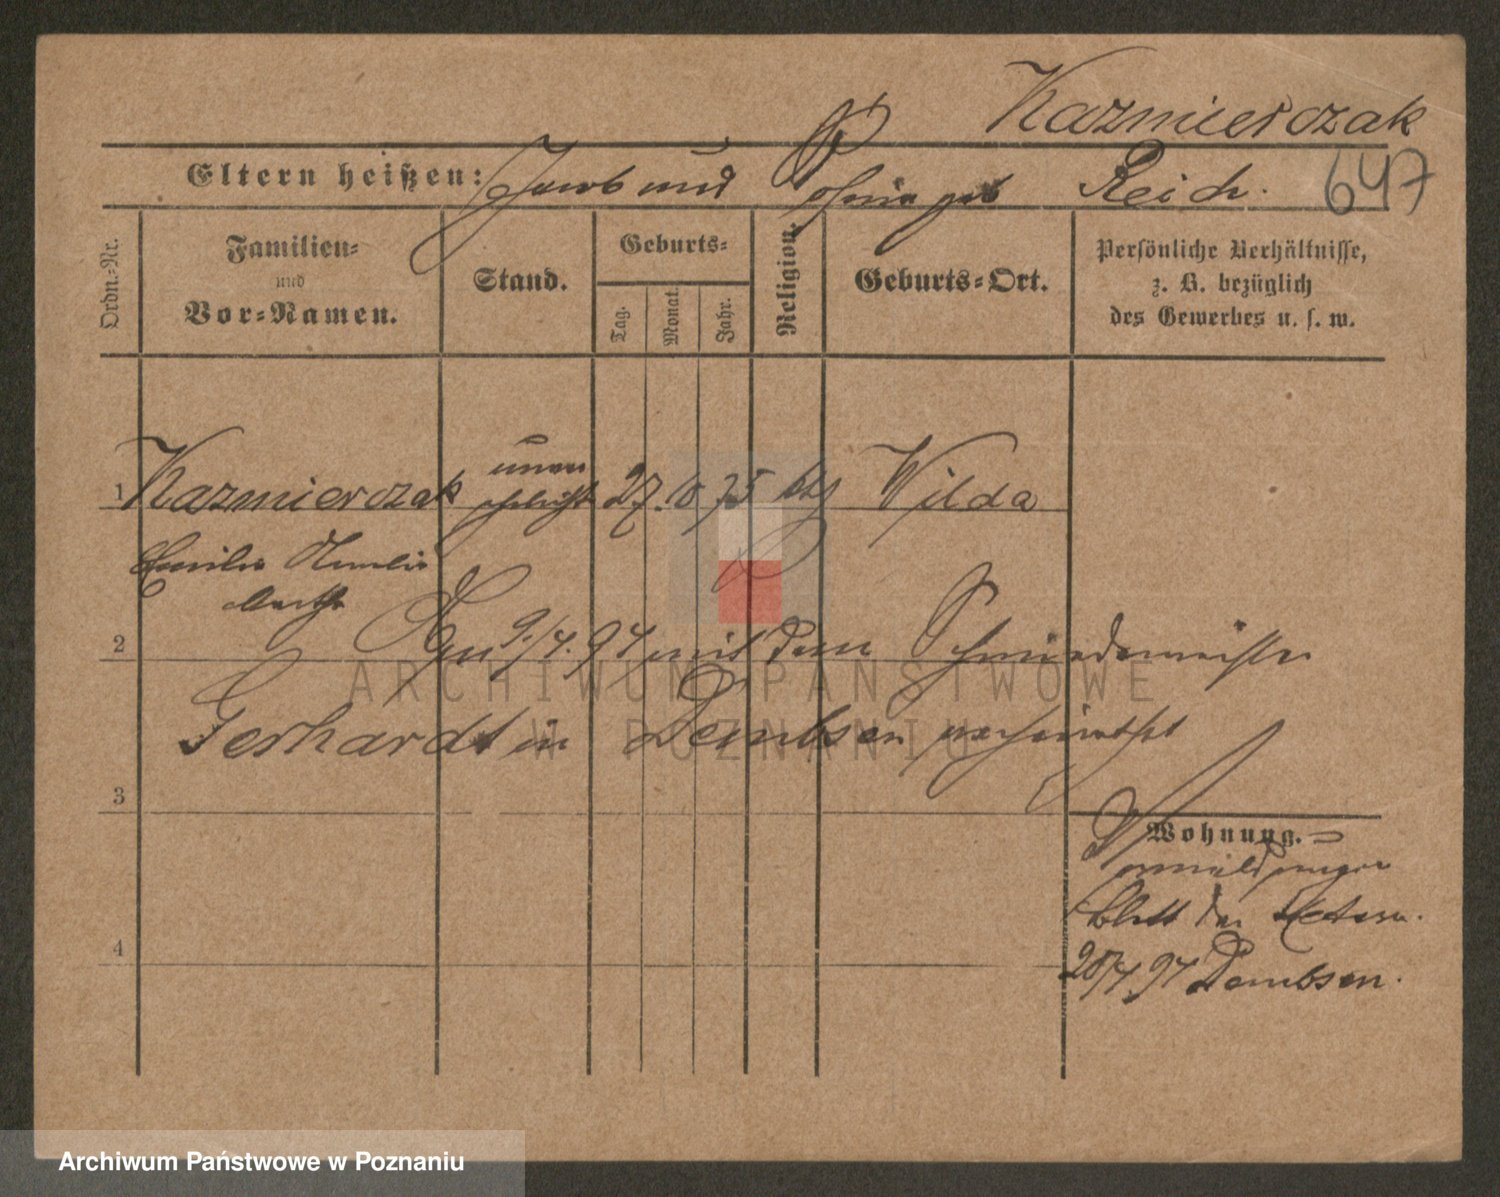 Kazmierczak
Eltern heißen: Jacob und geb Reich. 647
Ordn.-Nr.
Familien-
und
Vor-Namen.
Stand.
Geburts-
Tag.
Monat.
Jahr.
Religion.
Geburts-Ort.
Persönliche Verhältnisse,
z. B. bezüglich
des Gewerbes u. s. w.
1 Kazmierczak unver 27. 75 Wilda
ehelicht
Emilie Amalie
Martha
2 Am 9./4. 97 mit dem Schmiedemeister
ARCHIWUM PAŃSTWOWE
W POZNANIU
Gerhardt in Dembsen verheirathet
3
Wohnung.
blatt den
4 20/4 97 Dembsen.
Archiwum Państwowe w Poznaniu